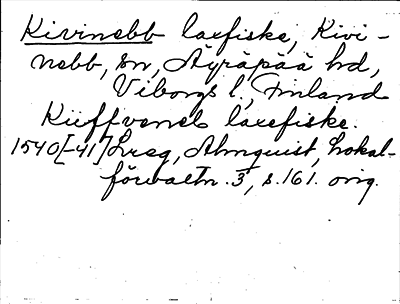 Kivinebb laxfiske, Kivi-
nebb, sn, Äyräpää hd,
Viborgs l, Finland
Küffveneb laxefiske.
1540[-41] Lrsg, Almquist, Lokal-
förvaltn. 3, s. 161. orig.